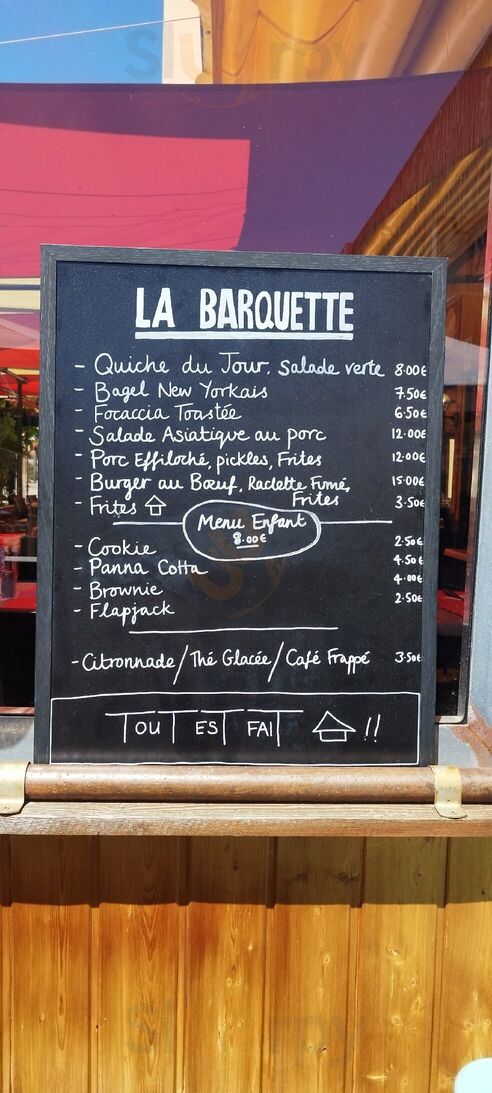 LA BARQUETTE
- Quiche du Jour, Salade verte 8.00€
- Bagel New Yorkais 7.50€
- Focaccia Toastée 6.50€
- Salade Asiatique au porc 12.00€
- Porc Effiloché, pickles, Frites 12.00€
- Burger au Bœuf, Raclette Fumé, 15.00€
Frites
- Frites 3.50€
Menu Enfant
8.00€
- Cookie 2.50€
- Panna Cotta 4.50€
- Brownie 4.00€
- Flapjack 2.50€
- Citronnade / Thé Glacée / Café Frappé 3.50€
TOUT EST FAIT !!